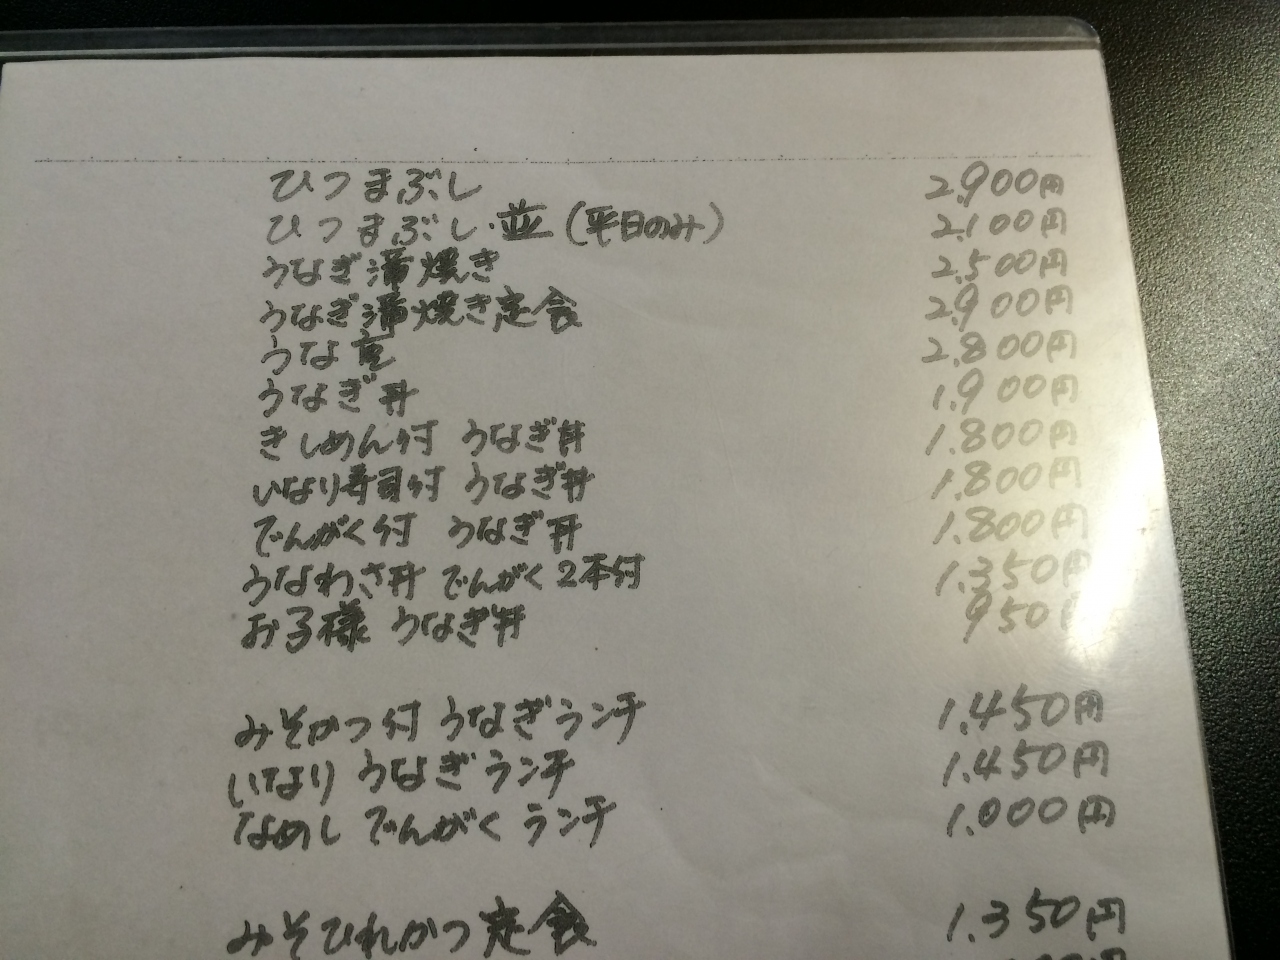 ひつまぶし 2,900円
ひつまぶし・並(平日のみ) 2,100円
うなぎ蒲焼き 2,500円
うなぎ蒲焼き定食 2,900円
うな重 2,800円
うなぎ丼 1,900円
きしめん付 うなぎ丼 1,800円
いなり寿司付 うなぎ丼 1,800円
でんがく付 うなぎ丼 1,800円
うなわさ丼 でんがく2本付 1,350円
お子様 うなぎ丼 950円
みそかつ付 うなぎランチ 1,450円
いなり うなぎランチ 1,450円
なめし でんがく ランチ 1,000円
みそひれかつ定食 1,350円